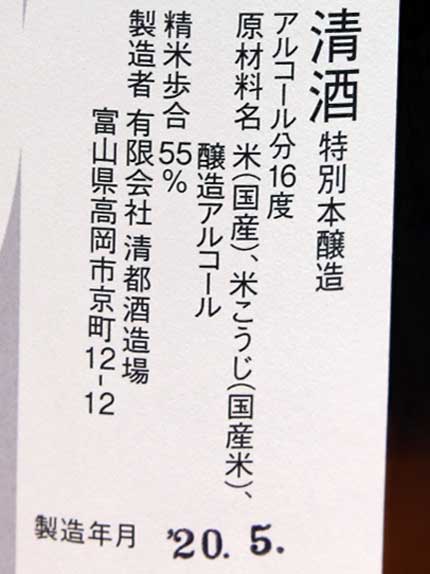 清酒 特別本醸造
アルコール分16度
原材料名 米(国産)、米こうじ(国産米)、
醸造アルコール
精米歩合 55%
製造者 有限会社 清都酒造場
富山県高岡市京町12-12
製造年月 '20. 5.